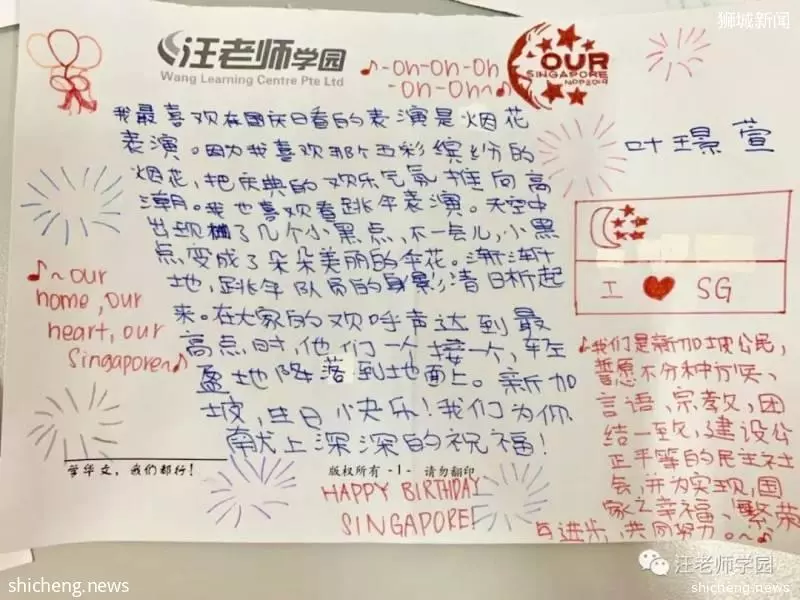 狮城新闻
汪老师学园
Wang Learning Centre Pte Ltd
♪-Oh-Oh-Oh
-Oh-Oh~♪
OUR
SINGAPORE
NDP2019
我最喜欢在国庆日看的表演是烟花
表演。因为我喜欢那个五彩缤纷的
烟花，把庆典的欢乐气氛推向高
潮。我也喜欢看跳伞表演。天空中
出现了几个小黑点，不一会儿，小黑
点变成了朵朵美丽的伞花。渐渐
地，跳伞队员的身影清晰起
来。在大家的欢呼声达到最
高点时，他们一个接一个，轻
盈地降落到地面上。新加
坡，生日快乐！我们为你
献上深深的祝福！
叶璟萱
I ❤ SG
♪~our
home, our
heart, our
Singapore~♪
♪我们是新加坡公民，
誓愿不分种族、
言语、宗教，团
结一致，建设公
正平等的民主社
会，并为实现，国
家之幸福、繁荣
与进步，共同努力。~♪
学华文，我们都行！
版权所有 -1- 请勿翻印
HAPPY BIRTHDAY
SINGAPORE!
汪老师学园
shicheng.news
shicheng.news